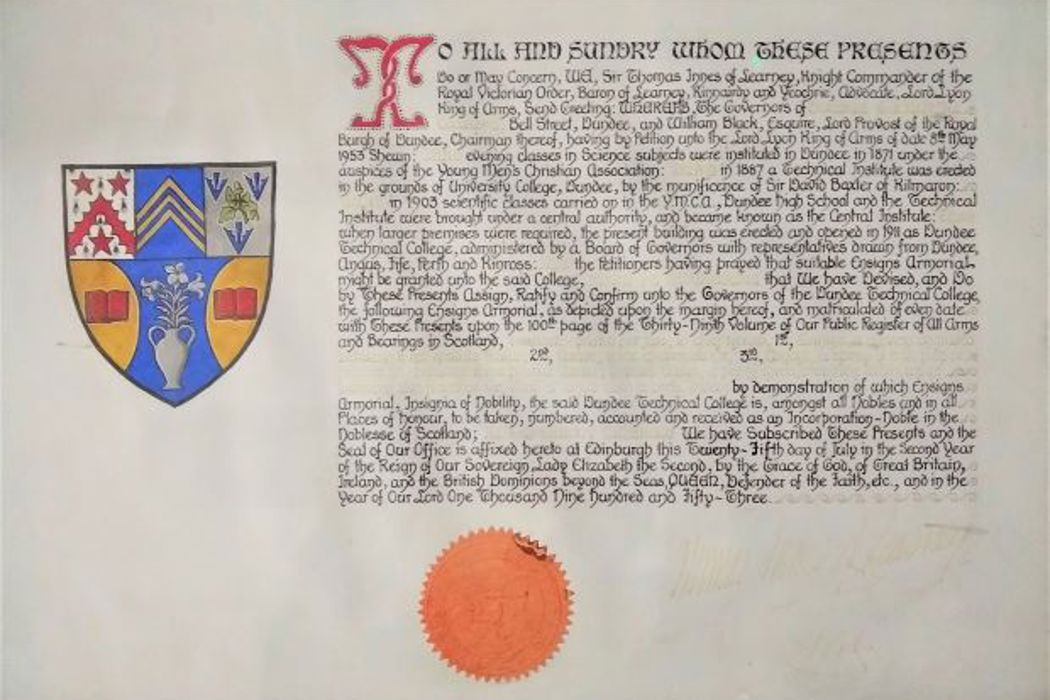 TO ALL AND SUNDRY WHOM THESE PRESENTS
Do or May Concern, WE, Sir Thomas Innes of Learney, Knight Commander of the
Royal Victorian Order, Baron of Learney, Kinnairdy and Yeochrie, Advocate, Lord Lyon
King of Arms, Send Greeting: WHEREAS, The Governors of
Bell Street, Dundee, and William Black, Esquire, Lord Provost of the Royal
Burgh of Dundee, Chairman thereof, having by Petition unto the Lord Lyon King of Arms of date 8th May
1953 Shewn: evening classes in Science subjects were instituted in Dundee in 1871 under the
auspices of the Young Men's Christian Association: in 1887 a Technical Institute was erected
in the grounds of University College, Dundee, by the munificence of Sir David Baxter of Kilmaron:
in 1903 scientific classes carried on in the Y.M.C.A., Dundee High School and the Technical
Institute were brought under a central authority, and became known as the Central Institute:
when larger premises were required, the present building was erected and opened in 1911 as Dundee
Technical College, administered by a Board of Governors with representatives drawn from Dundee,
Angus, Fife, Perth and Kinross: the Petitioners having prayed that suitable Ensigns Armorial
might be granted unto the said College, that We have Devised, and Do
by These Presents Assign, Ratify and Confirm unto the Governors of the Dundee Technical College,
the following Ensigns Armorial, as depicted upon the margin hereof, and matriculated of even date
with These Presents upon the 100th page of the Thirty-Ninth Volume of Our Public Register of All Arms
and Bearings in Scotland, 1st,
2nd, 3rd,
by demonstration of which Ensigns
Armorial, Insignia of Nobility, the said Dundee Technical College is, amongst all Nobles and in all
Places of Honour, to be taken, numbered, accounted and received as an Incorporation-Noble in the
Noblesse of Scotland; We have Subscribed These Presents and the
Seal of Our Office is affixed hereto at Edinburgh this Twenty-Fifth day of July in the Second Year
of the Reign of Our Sovereign Lady Elizabeth the Second, by the Grace of God, of Great Britain,
Ireland, and the British Dominions beyond the Seas, QUEEN, Defender of the Faith, etc., and in the
Year of Our Lord One Thousand Nine Hundred and Fifty-Three.